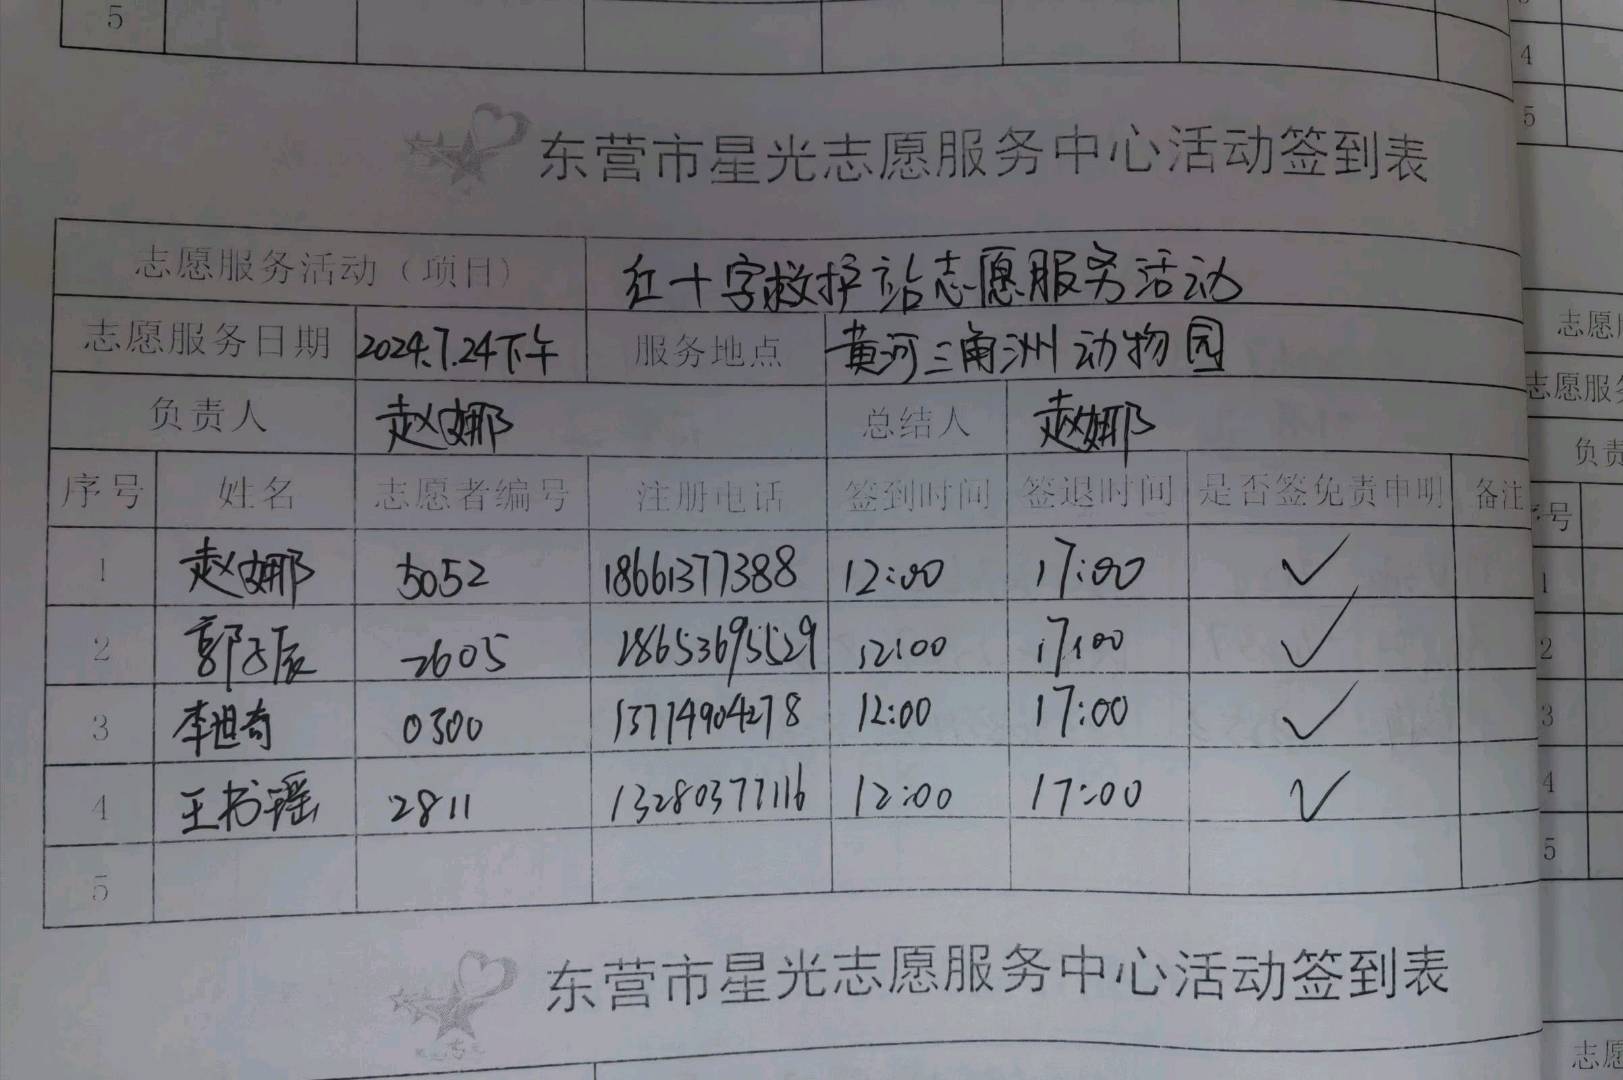 5
东营市星光志愿服务中心活动签到表
志愿服务活动（项目） 红十字救护站志愿服务活动
志愿服务日期 2024.7.24下午 服务地点 黄河三角洲动物园
负责人 赵娜 总结人 赵娜
序号 姓名 志愿者编号 注册电话 签到时间 签退时间 是否签免责申明 备注
1 赵娜 5052 18661377388 12:00 17:00 ✓
2 郭子辰 2605 18653695529 12:00 17:00 ✓
3 李迦奇 0300 13774904278 12:00 17:00 ✓
4 王书瑶 2811 13280377116 12:00 17:00 ✓
5
东营市星光志愿服务中心活动签到表
4
5
志愿
志愿服
负责
号
1
2
3
4
5
志愿